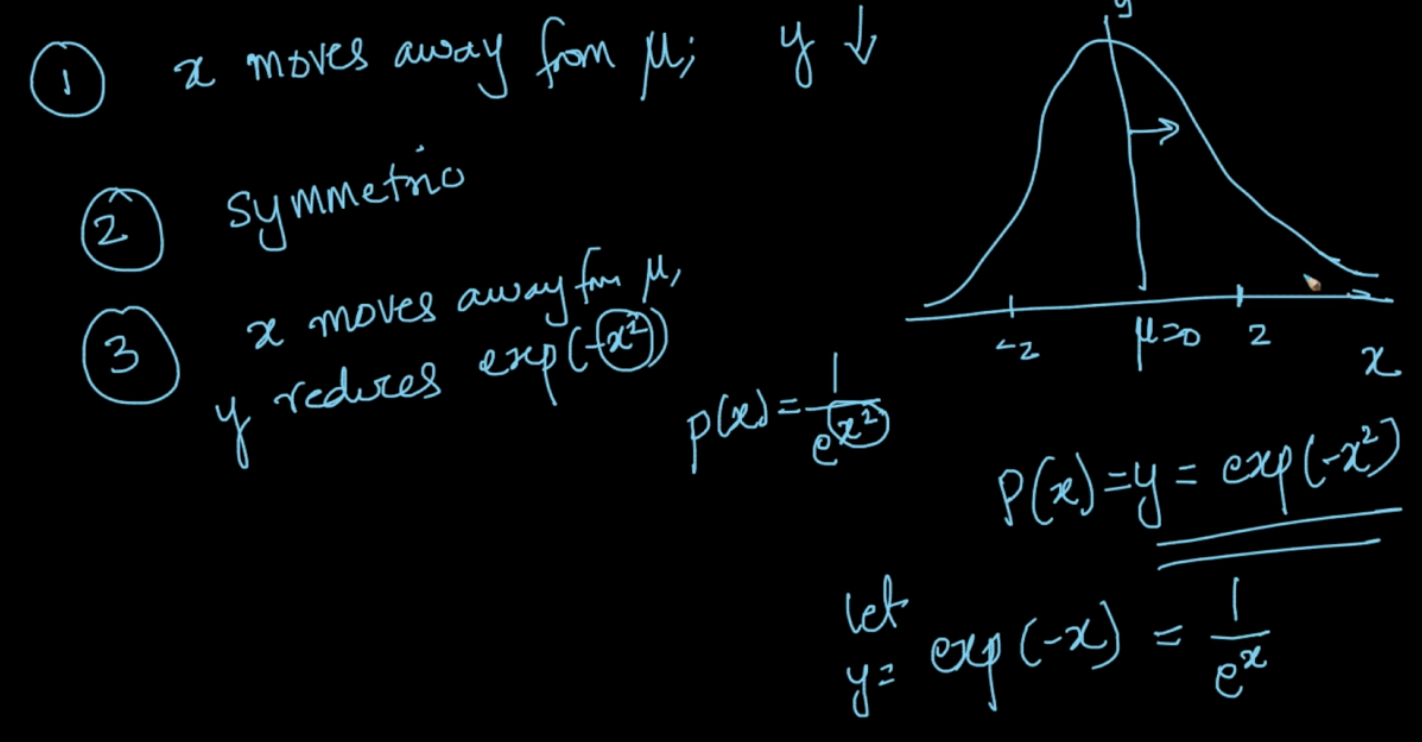 ① x moves away from μ; y ↓
② symmetric
③ x moves away from μ,
y reduces exp(-x²)
y
-2 μ=0 2 x
p(x) = 1/e^(x²)
P(x) = y = exp(-x²)
let
y = exp(-x) = 1/e^x